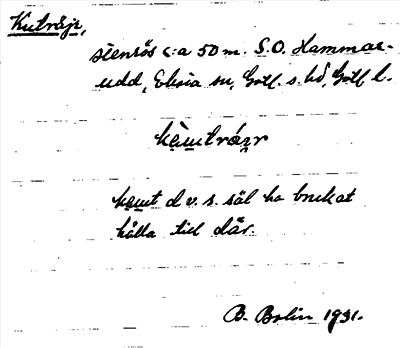 Kutröjr,
stenrös c:a 50 m. S.O. Hammar-
udd, Eksta sn, Gotl. s. hd, Gotl l.
kut d v. s. säl ha brukat
hålla till där.
B. Bolin 1931.